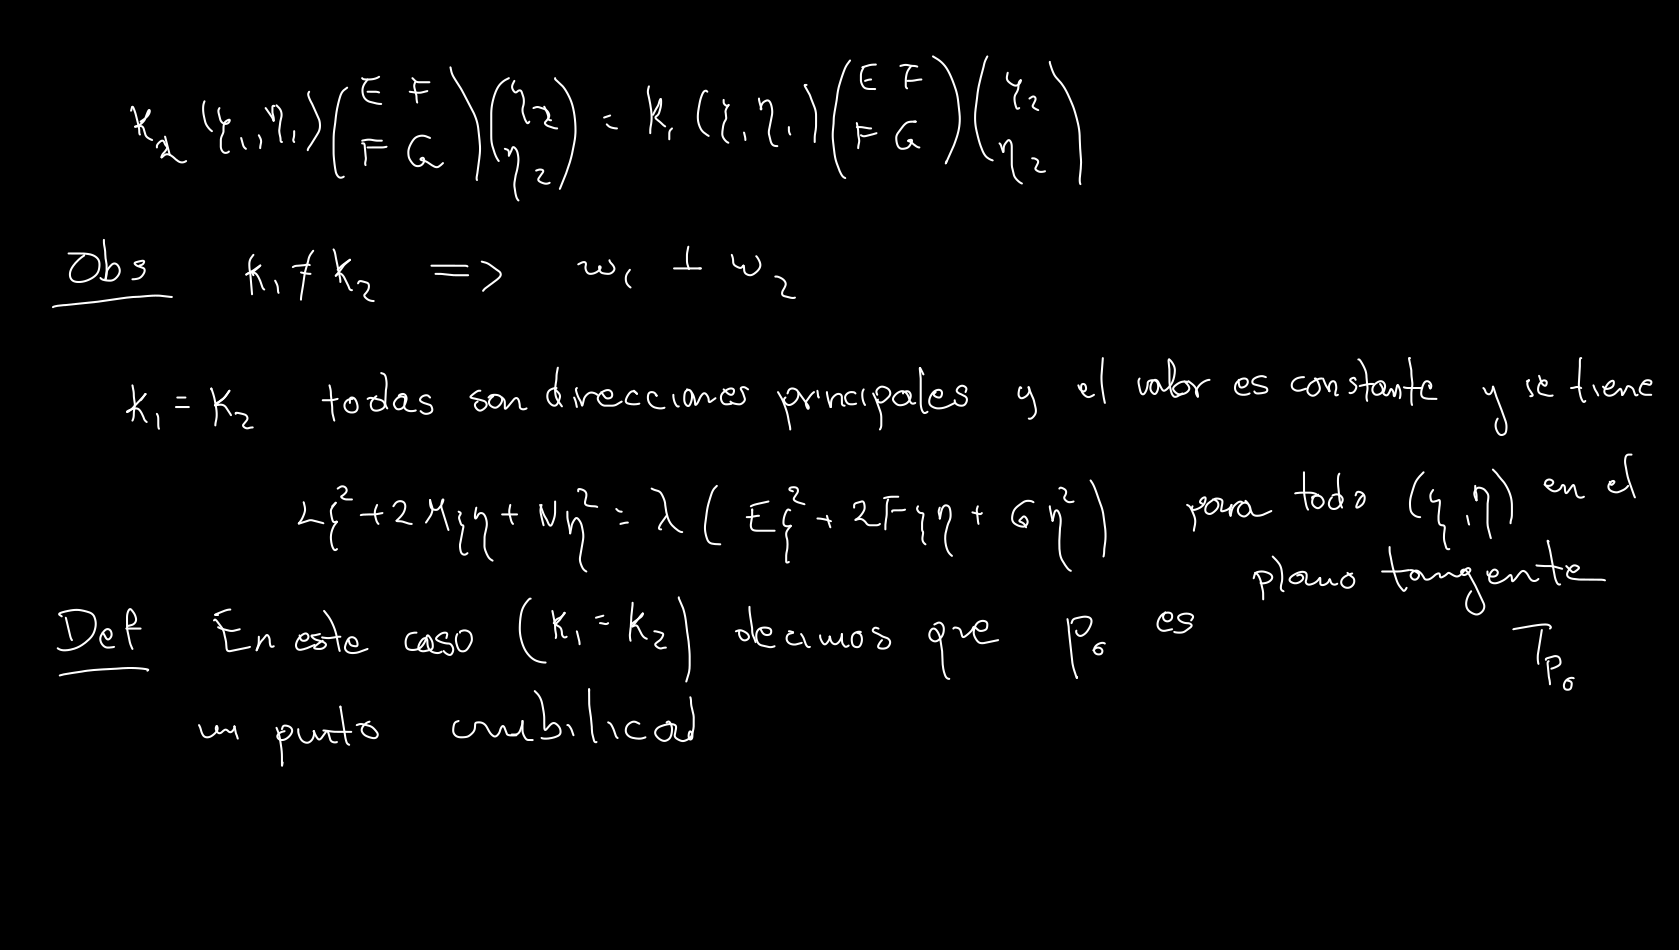 k₂ (ξ₁, η₁) (E F; F G) (ξ₂; η₂) = k₁ (ξ₁, η₁) (E F; F G) (ξ₂; η₂)
Obs k₁ ≠ k₂ => w₁ ⊥ w₂
k₁ = k₂ todas son direcciones principales y el valor es constante y se tiene
Lξ² + 2Mξη + Nη² = λ (Eξ² + 2Fξη + Gη²) para todo (ξ, η) en el
plano tangente
T_p₀
Def En este caso (k₁ = k₂) decimos que p₀ es
un punto umbilical